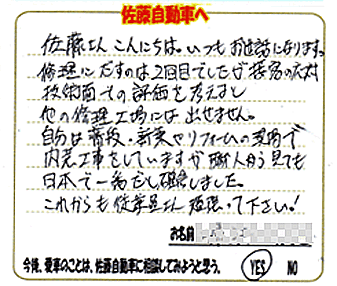 佐藤自動車へ
佐藤さんこんにちは。いつもお世話になります。
修理にだすのは2回目でしたが接客の対応
技術面での評価を考えまし
他の修理工場には出せません。
自分は普段・新築やリフォームの現場で
内装工事をしていますが職人から見ても
日本で一番だと確信しました。
これからも従業員さん頑張って下さい!
お名前
今後、愛車のことは、佐藤自動車に相談してみようと思う。 YES NO